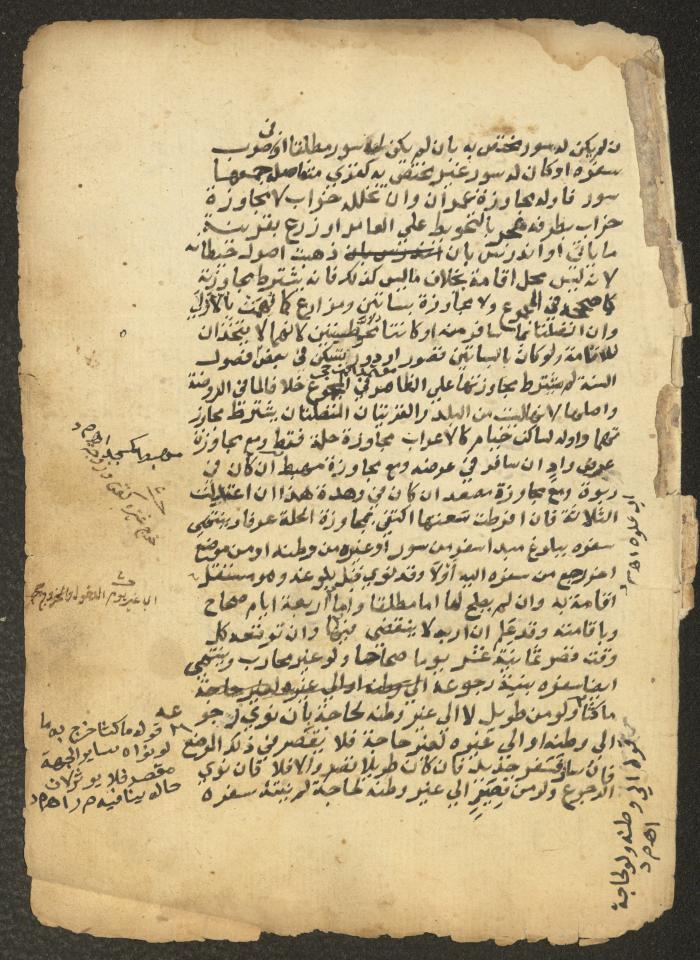 ن لم يكن له سور مختص به بان لم يكن له سور مطلقا او في صوب
سفره او كان له سور غير مختص به كقري متواصلة جمعها
سور فاوله مجاوزة عمران وان تخلله خراب لا مجاوزة
خراب بطرفه هجر بالتحويط علي العامر او زرع بقرينة
ما ياتي او اندرس بان ذهبت اصول حيطانه
لانه ليس محل اقامة بخلاف ما ليس كذلك فانه يشترط مجاوزته
كما صححه في المجموع ولا مجاوزة بساتين ومزارع كما فهمت بالاولي
وان اتصلتا بما سافر منه او كانتا محوطتين لانهما لا يتخذان
للاقامة ولو كان بالبساتين قصور او دور تسكن في بعض فصول
السنة لم يشترط مجاوزتها علي الظاهر في المجموع خلافا لما في الروضة
واصلها لانها ليست من البلد والقريتان المتصلتان يشترط مجاوز
تهما واوله لساكن خيام كالاعراب مجاوزة حلة فقط ومع مجاوزة
عرض واد ان سافر في عرضه ومع مجاوزة مهبط ان كان في
ربوة ومع مجاوزة مصعد ان كان في وهدة هذا ان اعتدلت
الثلاثة فان افرطت سعتها اكتفي بمجاوزة الحلة عرفا وينتهي
سفره ببلوغ مبدا سفر من سور او غيره من وطنه او من موضع
اخر رجع من سفره اليه اولا وقد نوي قبل بلوغه وهو مستقل
اقامة به وان لم يصلح لها اما مطلقا واما اربعة ايام صحاح
وباقامته وقد علم ان اربه لا ينقضي فيها وان توقعه كل
وقت قصر ثمانية عشر يوما صحاحا ولو غير محارب وينتهي
ايضا سفره بنية رجوعه
ماكثا ولو من طويل لا الي غير وطنه لحاجة بان نوي رجو
الي وطنه او الي غيره لغير حاجة فلا يقصر في ذلك الموضع
فان سافر فسفر جديد فان كان طويلا قصر والا فلا فان نوي
الرجوع ولو من قصير الي غير وطنه لحاجة لم ينته سفره
اي غير يوم الدخول والخروج
قوله ماكثا خرج به ما
لو نواه ساير الجهة
مقصده فلا يوثر لان
حاله ينافيه م ر اهـ م د
الي وطنه ولو لحاجة
اهـ م د